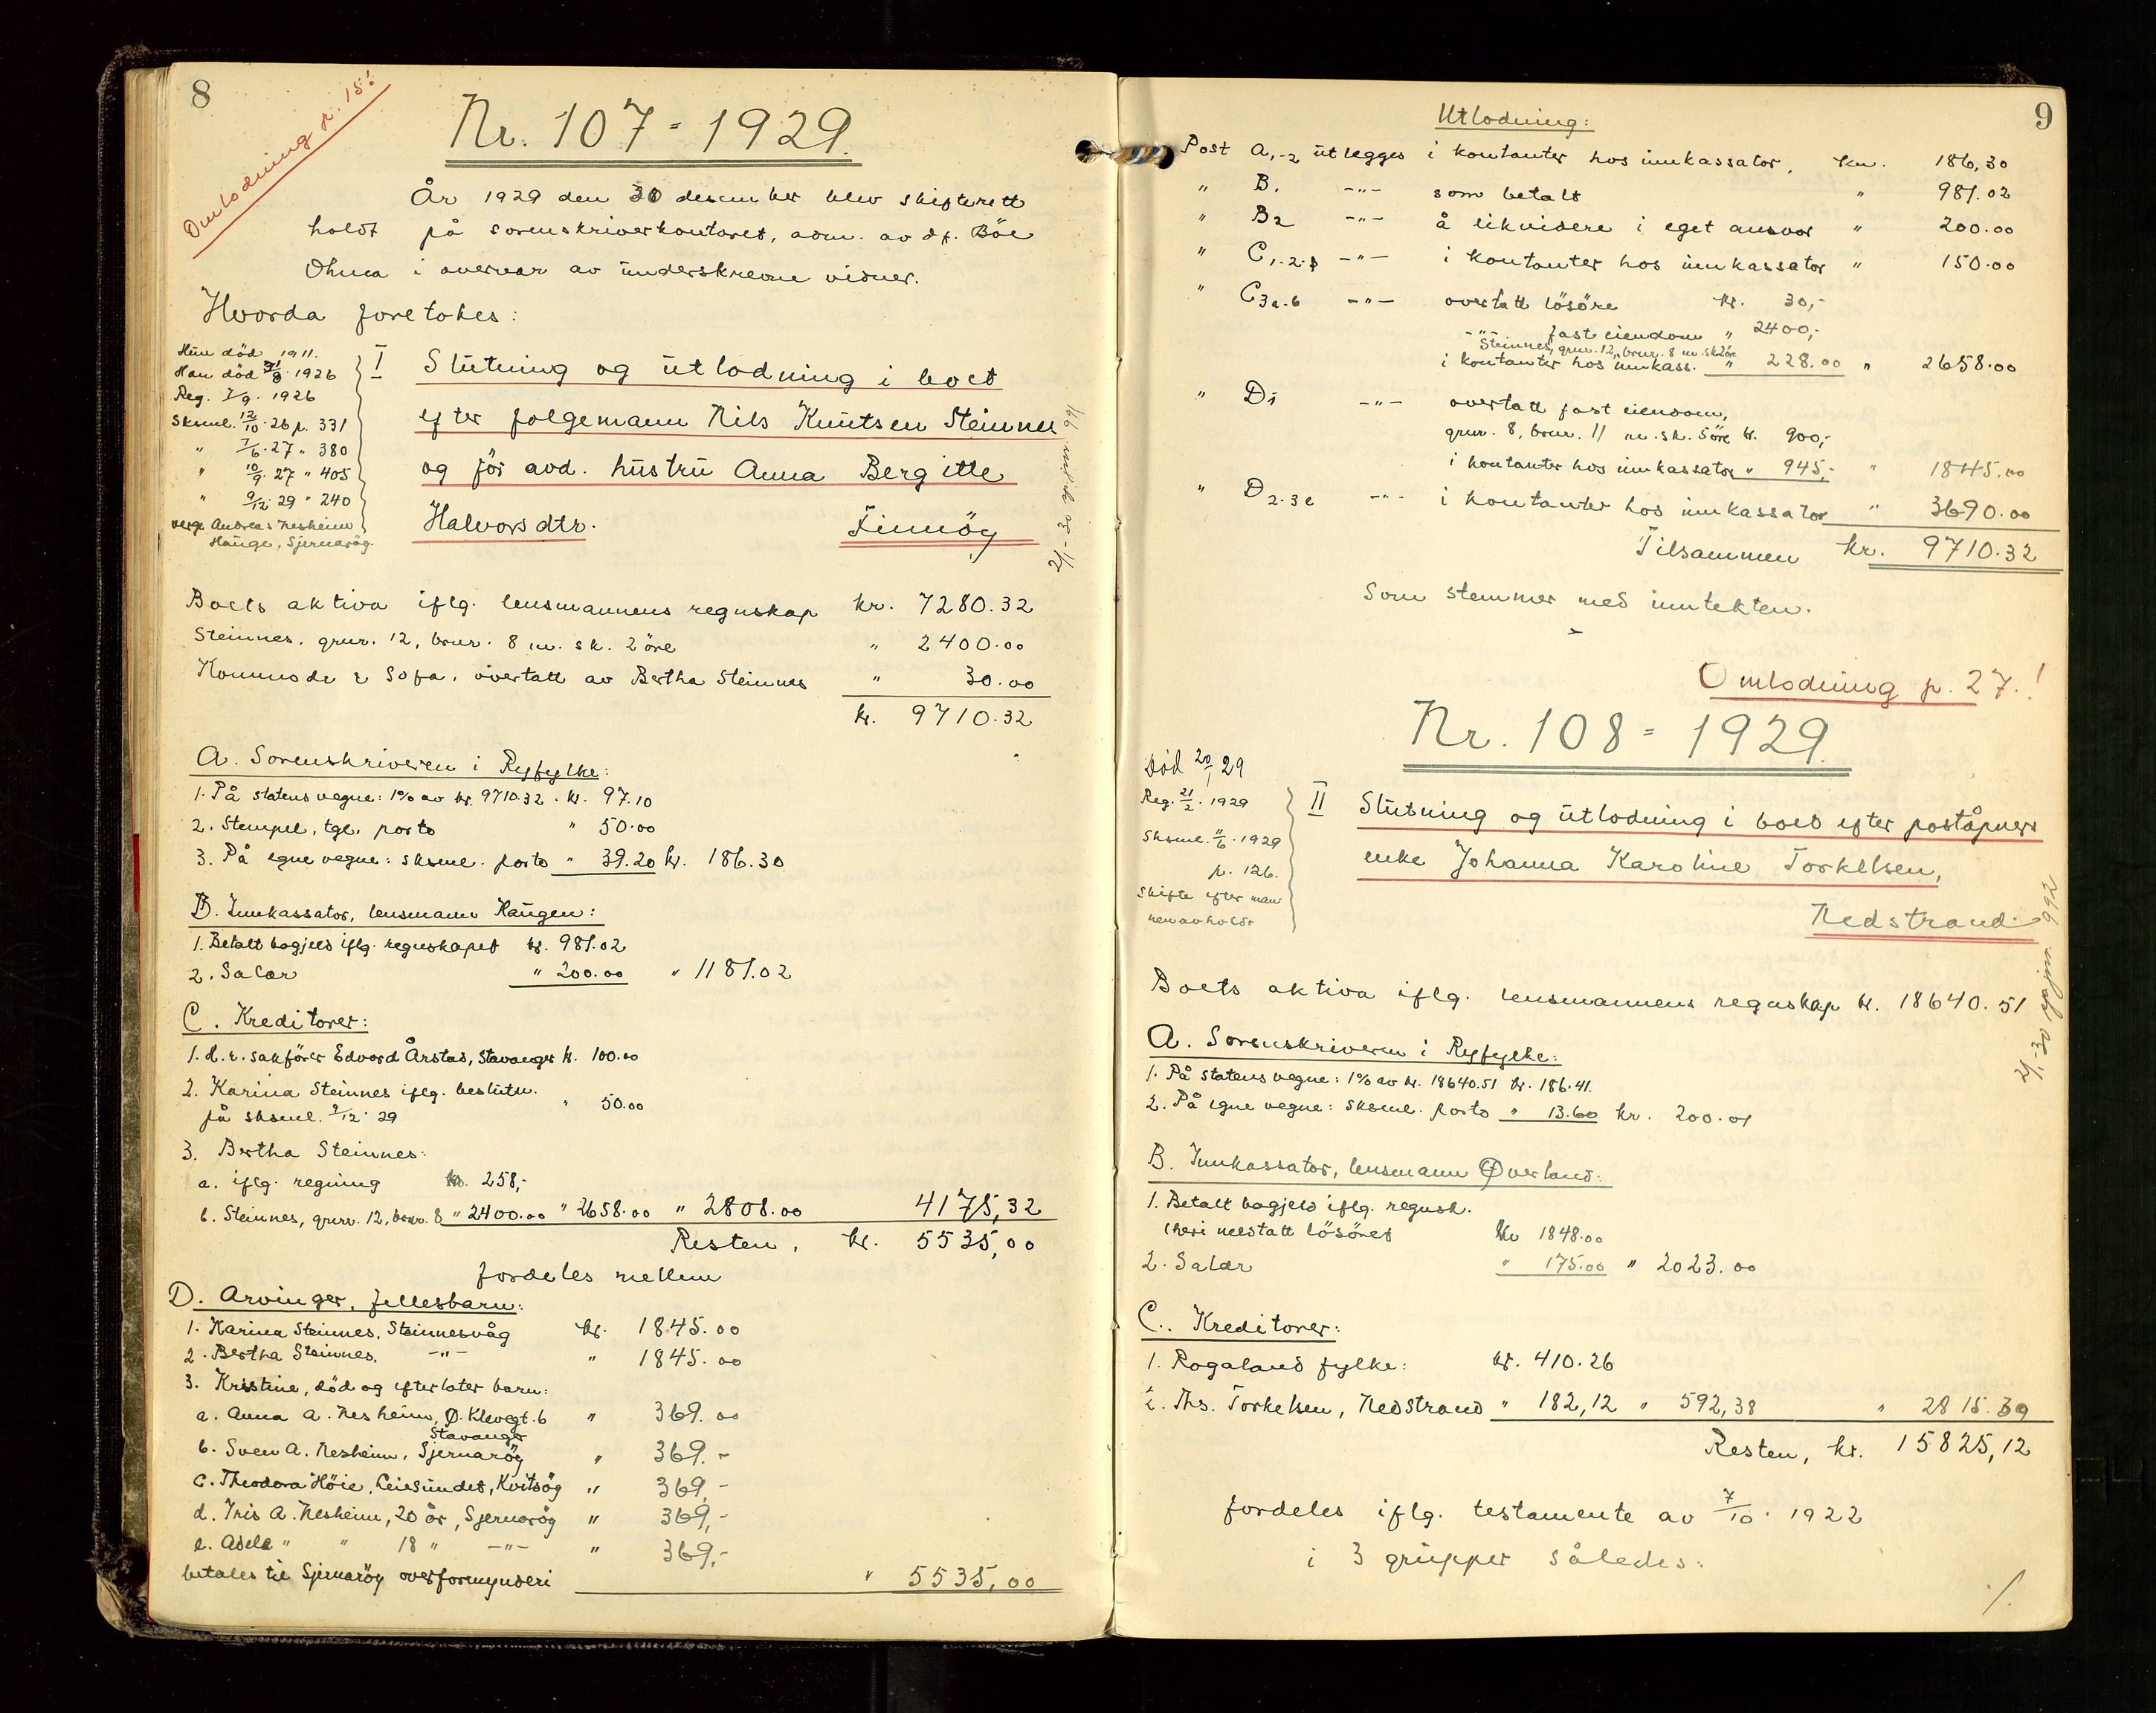 8
Omlodning p. 15!
Nr. 107 = 1929.
År 1929 den 30 desember blev skifterett
holdt på sorenskriverkontoret, adm. av df. Böe
Ohma i overvær av underskrevne vidner.
Hvorda foretokes:
Hun död 1911.
Han död 31/8 1926
Reg. 7/9. 1926
Sksml. 12/10. 26 p. 331
" 7/6. 27 " 380
" 10/9. 27 " 405
" 9/12. 29 " 240
verge Andreas Nesheim
Hauge, Sjernaröy.
I Slutning og utlodning i boet
efter folgemann Nils Knutsen Steinnes
og för avd. hustru Anna Bergitte
Halvorsdtr. Finnöy
2/1-30 gjen. 991
Boets aktiva iflg. lensmannens regnskap kr. 7280.32
Steinnes, grnr. 12, brnr. 8 m. sk. 2 öre " 2400.00
Kommode & Sofa, overtatt av Bertha Steinnes " 30.00
kr. 9710.32
A. Sorenskriveren i Ryfylke:
1. På statens vegne: 1% av kr. 9710.32 . kr. 97.10
2. Stempel, tgl. porto " 50.00
3. På egne vegne: sksml. porto " 39.20 kr. 186.30
B. Innkassator, lensmann Haugen:
1. Betalt bogjeld iflg. regnskapet kr. 981.02
2. Salær " 200.00 " 1181.02
C. Kreditorer:
1. H.r. sakförer Edvard Årstad, Stavanger kr. 100.00
2. Karina Steinnes iflg. beslutn.
på sksml. 9/12. 29 " 50.00
3. Bertha Steinnes:
a. iflg. regning kr. 258,-
b. Steinnes, grnr. 12, brnr. 8 " 2400.00 " 2658.00 " 2808.00 4175,32
Resten, kr. 5535,00
fordeles mellem
D. Arvinger, fellesbarn:
1. Karina Steinnes, Steinnesvåg kr. 1845.00
2. Bertha Steinnes, -"- " 1845.00
3. Kristine, död og efterlater barn:
a. Anna A. Nesheim, Ø. Klevegt. 6 " 369.00
Stavanger
b. Sven A. Nesheim, Sjernaröy " 369.-
c. Theodora Höie, Leiesundet, Kvitsöy " 369,-
d. Iris A. Nesheim, 20 år, Sjernaröy " 369,-
e. Adele " " 18 " -"- " 369,-
betales til Sjernaröy overformynderi " 5535,00
9
Utlodning:
Post A, -2 utlegges i kontanter hos innkassator, kr. 186,30
" B. -"- som betalt " 981.02
" B2 -"- å likvidere i eget ansvar " 200.00
" C1.2. -"- i kontanter hos innkassator " 150.00
" C3a-b -"- overtatt lösöre kr. 30,-
-"- fast eiendom " 2400,-
Steinnes, grnr. 12, brnr. 8 m. sk 2 öre
i kontanter hos innkass. " 228.00 " 2658.00
" D1 -"- overtatt fast eiendom,
grnr. 8, brnr. 11 m. sk. 5 öre kr. 900,-
i kontanter hos innkassator " 945,- " 1845.00
" D2-3e -"- i kontanter hos innkassator " 3690.00
Tilsammen kr. 9710.32
Som stemmer med inntekten.
Omlodning p. 27.!
Nr. 108 = 1929.
Död 20/1 29
Reg. 21/2. 1929
Sksml. 11/6. 1929
p. 126.
Skifte efter man
nen avholdt
II Slutning og utlodning i boet efter poståpner
enke Johanna Karoline Torkelsen,
Nedstrand.
2/1-30 gjen. 992
Boets aktiva iflg. lensmannens regnskap kr. 18640.51
A. Sorenskriveren i Ryfylke:
1. På statens vegne: 1% av kr. 18640.51 kr. 186.41.
2. På egne vegne: sksml. porto " 13.60 kr. 200.01
B. Innkassator, lensmann Øverland:
1. Betalt bogjeld iflg. regnsk.
(heri medtatt lösöret kr 1848.00
2. Salær " 175.00 " 2023.00
C. Kreditorer:
1. Rogaland fylke: kr. 410.26
2. Ths. Torkelsen, Nedstrand " 182,12 " 592,38 " 2815.39
Resten, kr. 15825,12
fordeles iflg. testamente av 7/10. 1922
i 3 grupper således:
./.